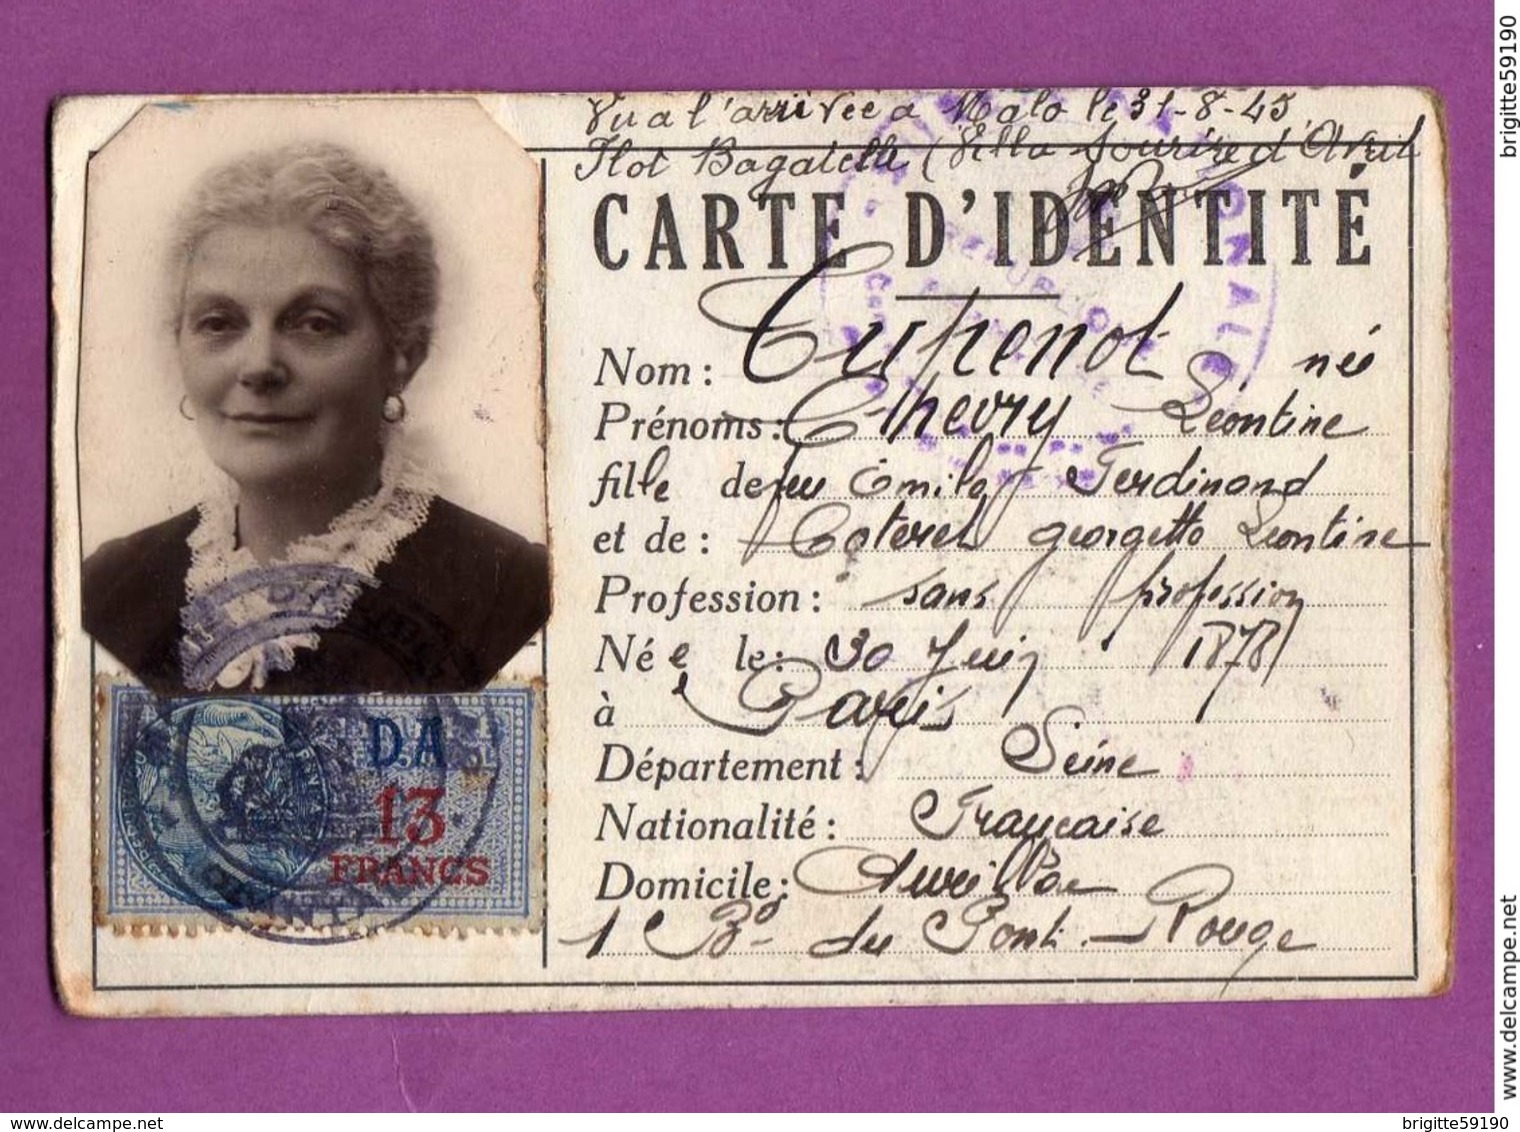 Vu a l'arrivée a Malo le 31-8-45
Ilot Bagatelle (Villa Sourire d'Avril
CARTE D'IDENTITÉ
Nom: Cupenot née
Prénoms: Thevry Léontine
fille de feu Emile Ferdinand
et de: Coterel georgette Leontine
Profession: sans profession
Née le: 30 Juin 1878
à Paris
Département: Seine
Nationalité: Française
Domicile: Aurillac
1 Bd du Pont-Rouge
D.A
13
FRANCS
brigitte59190
www.delcampe.net
delcampe.net
brigitte59190